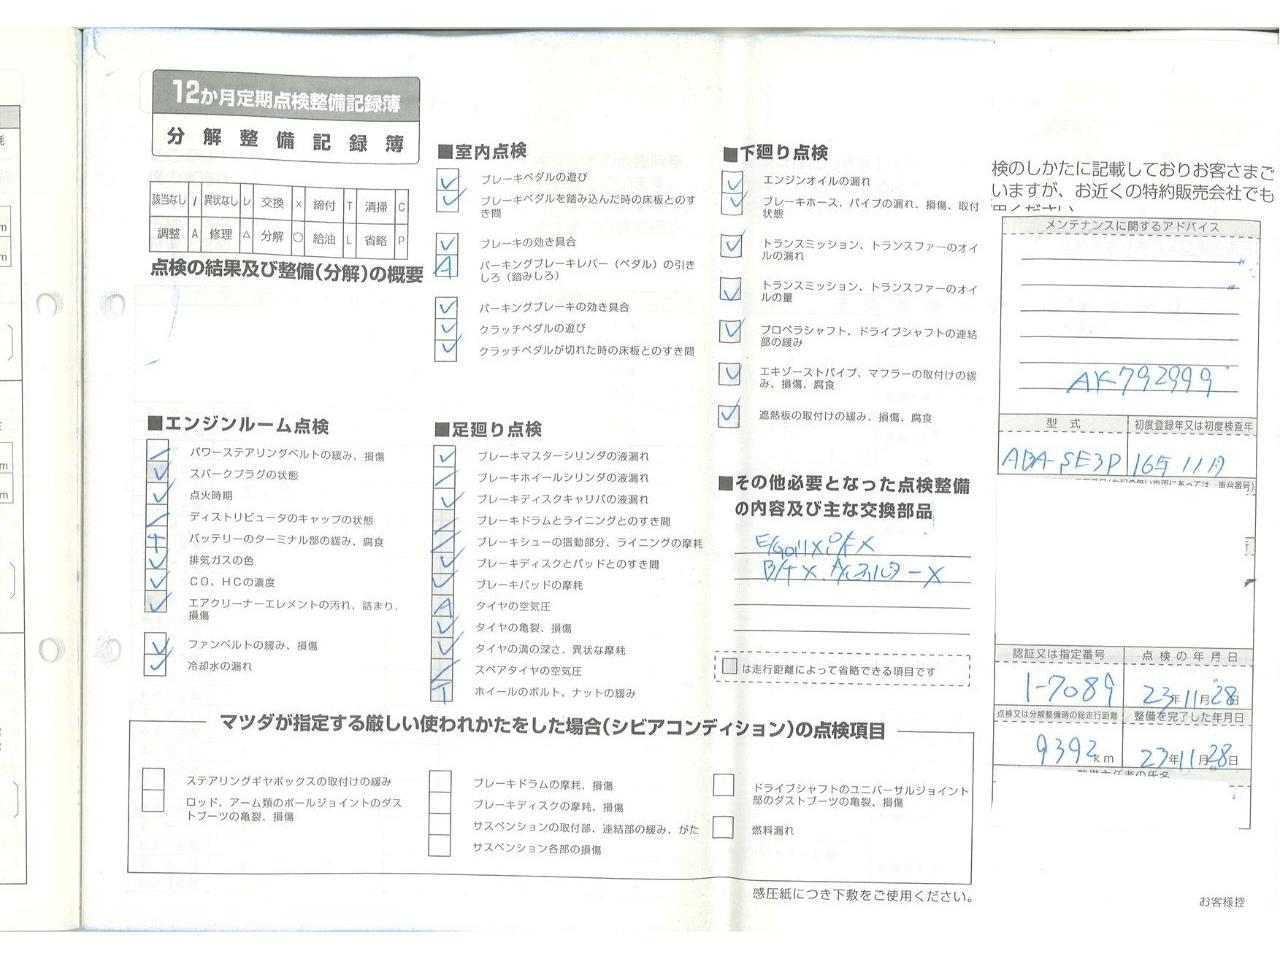 12か月定期点検整備記録簿
分解整備記録簿
該当なし / 異状なし レ 交換 × 締付 T 清掃 C
調整 A 修理 △ 分解 ○ 給油 L 省略 P
点検の結果及び整備(分解)の概要
■エンジンルーム点検
パワーステアリングベルトの緩み、損傷
スパークプラグの状態
点火時期
ディストリビュータのキャップの状態
バッテリーのターミナル部の緩み、腐食
排気ガスの色
CO、HCの濃度
エアクリーナーエレメントの汚れ、詰まり、
損傷
ファンベルトの緩み、損傷
冷却水の漏れ
■室内点検
ブレーキペダルの遊び
ブレーキペダルを踏み込んだ時の床板とのす
き間
ブレーキの効き具合
パーキングブレーキレバー(ペダル)の引き
しろ(踏みしろ)
パーキングブレーキの効き具合
クラッチペダルの遊び
クラッチペダルが切れた時の床板とのすき間
■足廻り点検
ブレーキマスターシリンダの液漏れ
ブレーキホイールシリンダの液漏れ
ブレーキディスクキャリパの液漏れ
ブレーキドラムとライニングとのすき間
ブレーキシューの摺動部分、ライニングの摩耗
ブレーキディスクとパッドとのすき間
ブレーキパッドの摩耗
タイヤの空気圧
タイヤの亀裂、損傷
タイヤの溝の深さ、異状な摩耗
スペアタイヤの空気圧
ホイールのボルト、ナットの緩み
■下廻り点検
エンジンオイルの漏れ
ブレーキホース、パイプの漏れ、損傷、取付
状態
トランスミッション、トランスファーのオイ
ルの漏れ
トランスミッション、トランスファーのオイ
ルの量
プロペラシャフト、ドライブシャフトの連結
部の緩み
エキゾーストパイプ、マフラーの取付けの緩
み、損傷、腐食
遮熱板の取付けの緩み、損傷、腐食
■その他必要となった点検整備
の内容及び主な交換部品
E/Goil× O/F×
B/F×
は走行距離によって省略できる項目です
検のしかたに記載しておりお客さまご
いますが、お近くの特約販売会社でも
メンテナンスに関するアドバイス
AK792999
型式 初度登録年又は初度検査年
ABA-SE3P 16年11月
認証又は指定番号 点検の年月日
1-7089 23年11月28日
点検又は分解整備時の総走行距離 整備を完了した年月日
9392km 23年11月28日
マツダが指定する厳しい使われかたをした場合(シビアコンディション)の点検項目
ステアリングギヤボックスの取付けの緩み
ロッド、アーム類のボールジョイントのダス
トブーツの亀裂、損傷
ブレーキドラムの摩耗、損傷
ブレーキディスクの摩耗、損傷
サスペンションの取付部、連結部の緩み、がた
サスペンション各部の損傷
ドライブシャフトのユニバーサルジョイント
部のダストブーツの亀裂、損傷
燃料漏れ
感圧紙につき下敷をご使用ください。
お客様控